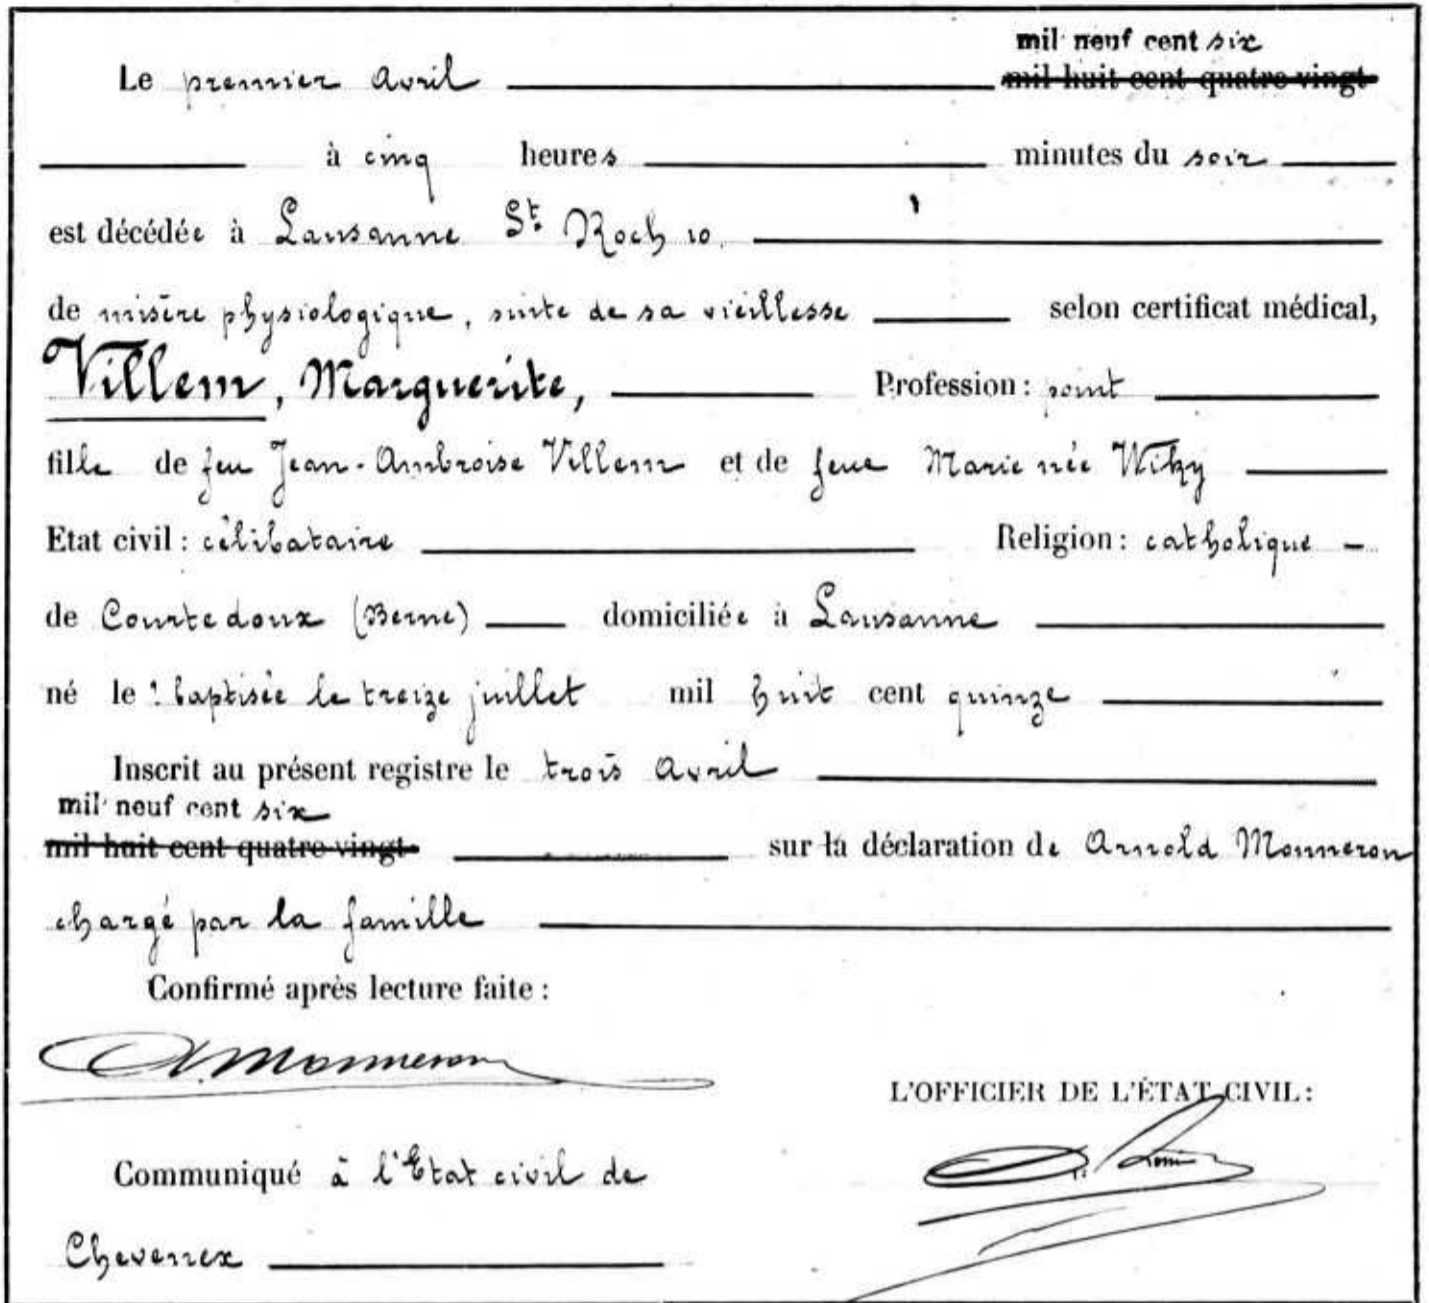 mil neuf cent six
Le premier Avril mil huit cent quatre-vingt
à cinq heures minutes du soir
est décédée à Lausanne St. Roch 10.
de misère physiologique, suite de sa vieillesse selon certificat médical,
Villem, Marguerite, Profession : point
fille de feu Jean-Ambroise Villem et de feue Marie née Wiky
Etat civil : célibataire Religion : catholique -
de Courtedoux (Berne) domiciliée à Lausanne
né le : baptisée le treize juillet mil huit cent quinze
Inscrit au présent registre le trois Avril
mil neuf cent six
mil huit cent quatre-vingt sur la déclaration de Arnold Monneron
chargé par la famille
Confirmé après lecture faite :
A. Monneron
L'OFFICIER DE L'ÉTAT CIVIL :
Communiqué à l'Etat civil de
Chevenez